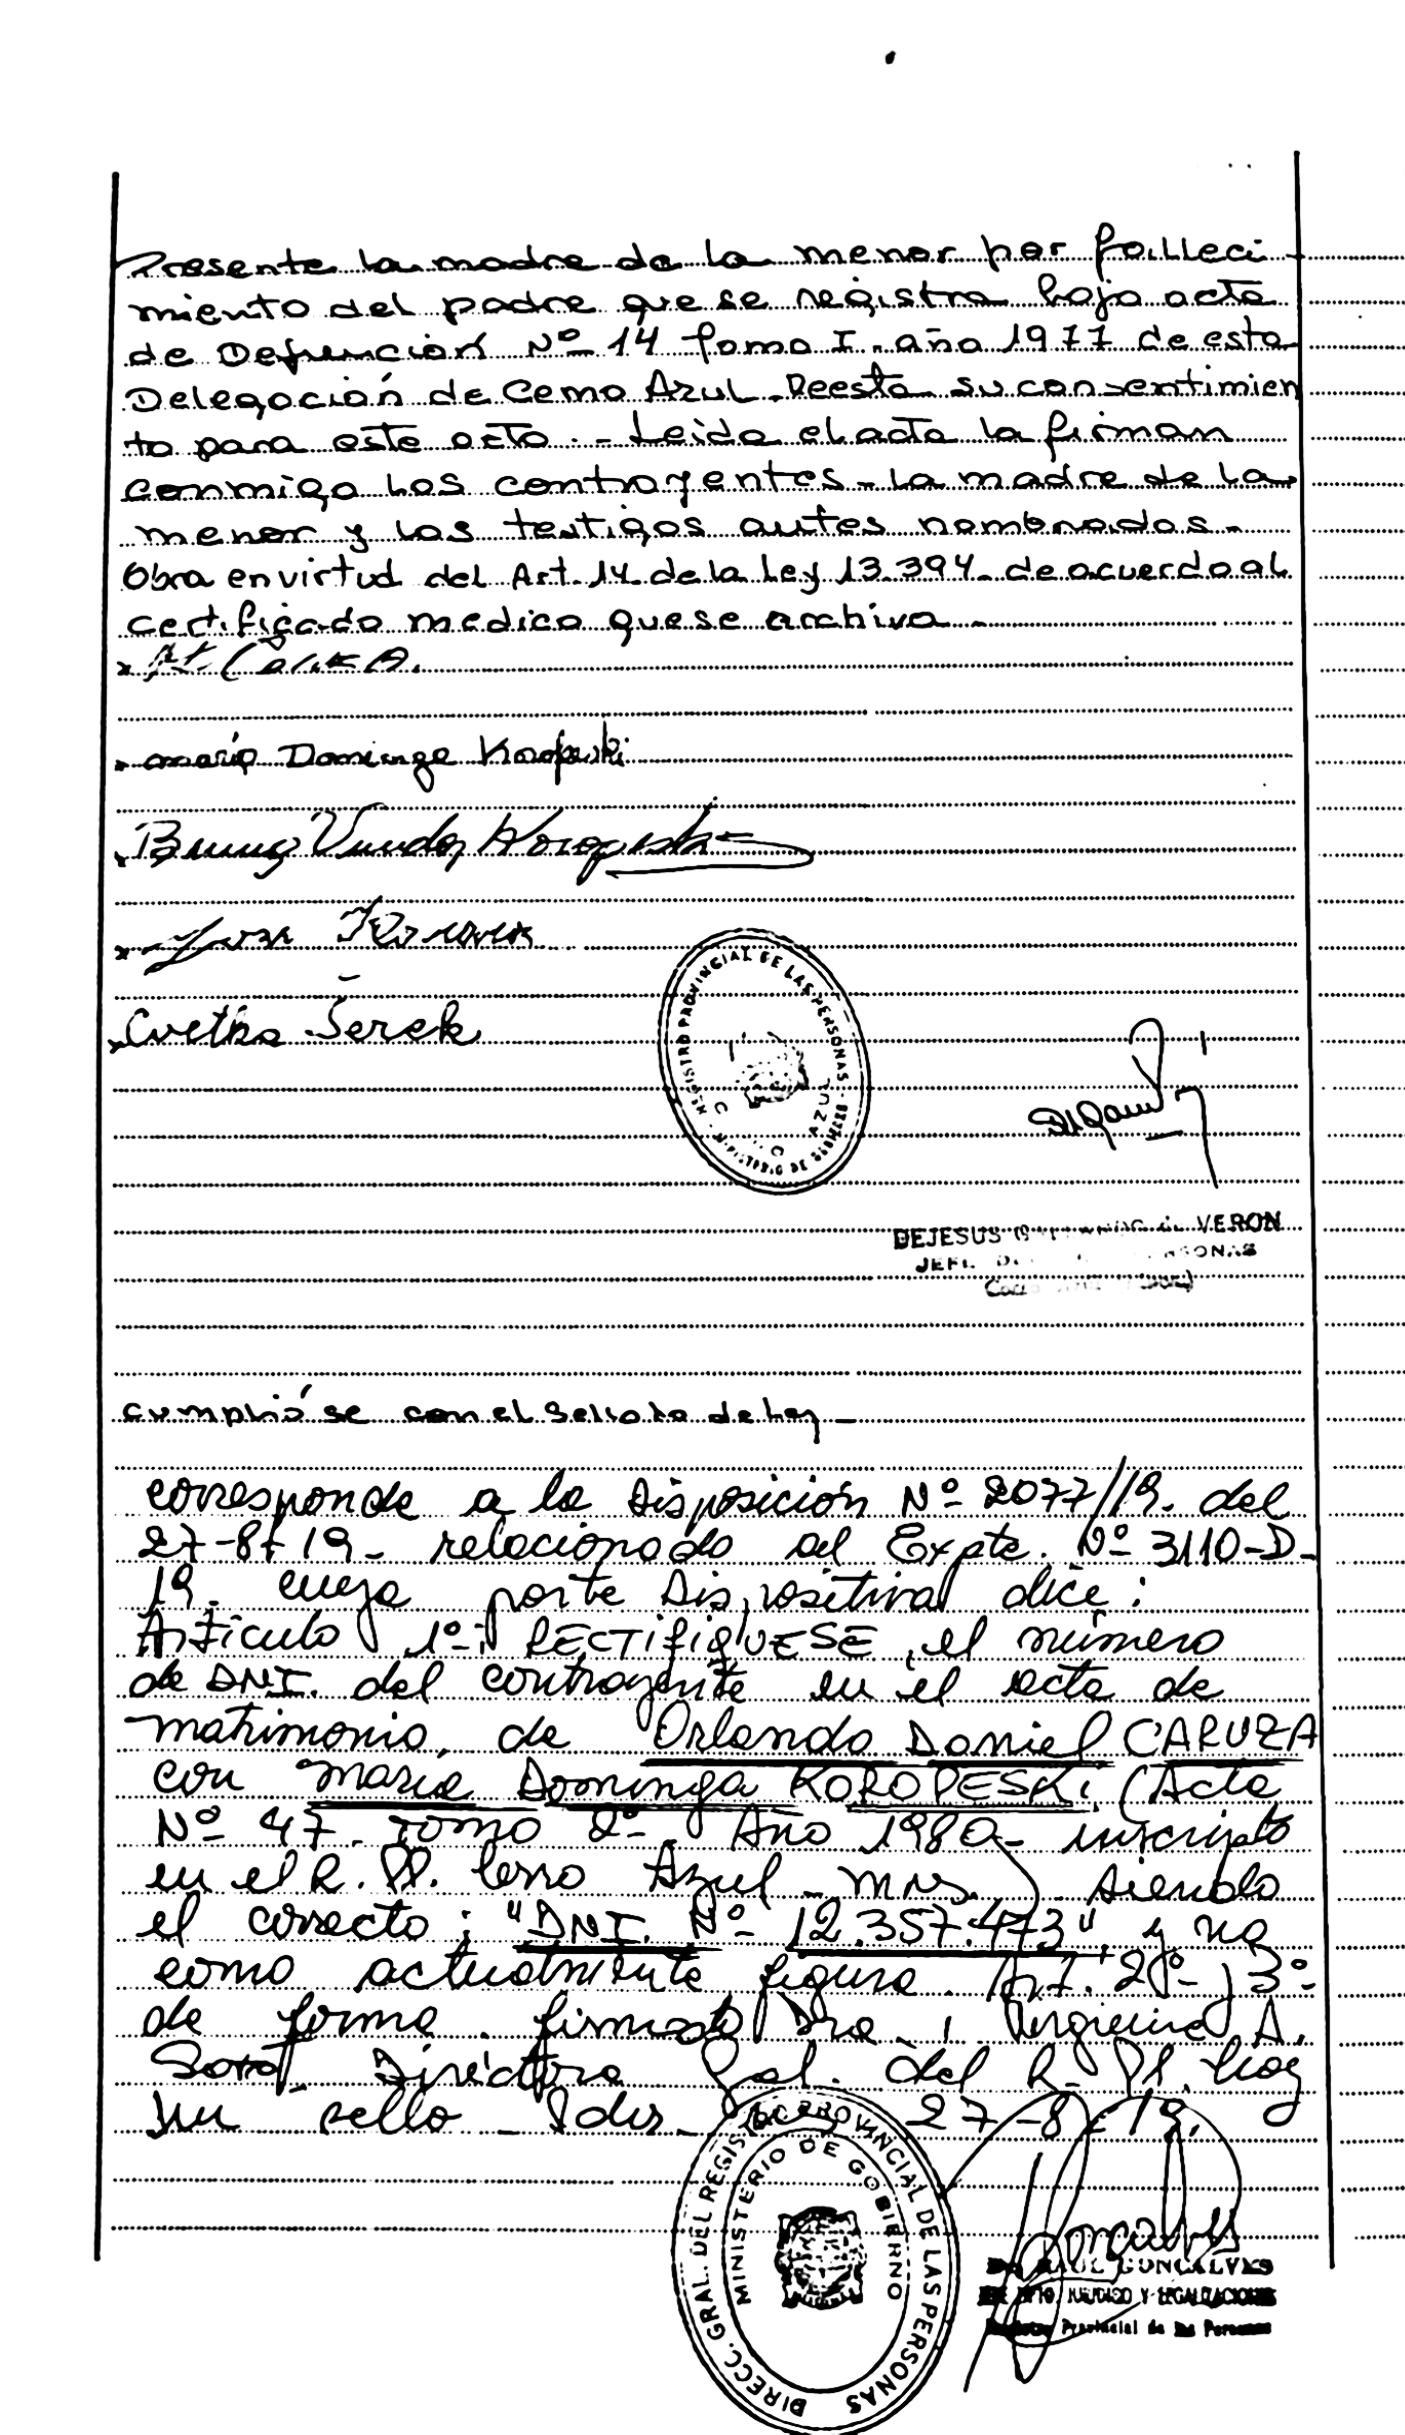 Presente la madre de la menor por falleci
miento del padre que se registra bajo acta
de Defunción Nº 14 Tomo I. año 1977 de esta
Delegación de Cerro Azul. Presta su consentimien
to para este acto. - Leida el acta la firman
conmigo los contrayentes - la madre de la
menor y los testigos antes nombrados -
Obra en virtud del Art. 14 de la Ley 13.394 - de acuerdo al
certificado medico que se archiva -
Maria Dominga Koropeski
Koropeski
Cvetka Šerek
REGISTRO PROVINCIAL DE LAS PERSONAS - MINISTERIO DE GOBIERNO
AZUL
DEJESUS VERON
JEFE PERSONAS
cumplióse con el Sellado de Ley -
corresponde a la Disposición Nº 2077/19. del
27-8-19 - relacionado al Expte. Nº 3110-D-
19. cuya parte Dispositiva dice:
Artículo 1º: RECTIFIQUESE, el número
de DNI. del contrayente en el acta de
matrimonio, de Orlando Daniel CARUZA
con Maria Dominga KOROPESKi, (Acta
Nº 47. Tomo 2º - Año 1980 - inscripto
en el R. PP. Cerro Azul - Mns.) siendo
el correcto: "DNI. Nº 12.357.473", y no
como actualmente figura. Art. 2º- y 3º-
de forma. firmado Dra. A.
Directora Gral. del R. PP. hay
un sello - Pdas. 27-8-19.
DIRECC. GRAL. DEL REGISTRO PROVINCIAL DE LAS PERSONAS
MINISTERIO DE GOBIERNO
RAUL GONCALVES
JEFE DPTO. JURIDICO Y LEGALIZACIONES
Registro Provincial de las Personas